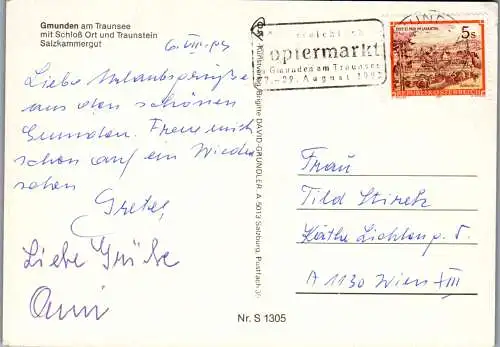 Gmunden am Traunsee
mit Schloß Ort und Traunstein
Salzkammergut
Liebe Urlaubsgrüße
aus dem schönen
Gmunden. Freue mich
schon auf ein Wieder
sehen
Gretel
Liebe Grüße
Anni
Kunstverlag Brigitte DAVID-GRÜNDLER, A 5012 Salzburg, Postfach
Nr. S 1305
Gmunden am Traunsee
August
5s
REPUBLIK ÖSTERREICH
Frau
Tild
A 1130 Wien XIII